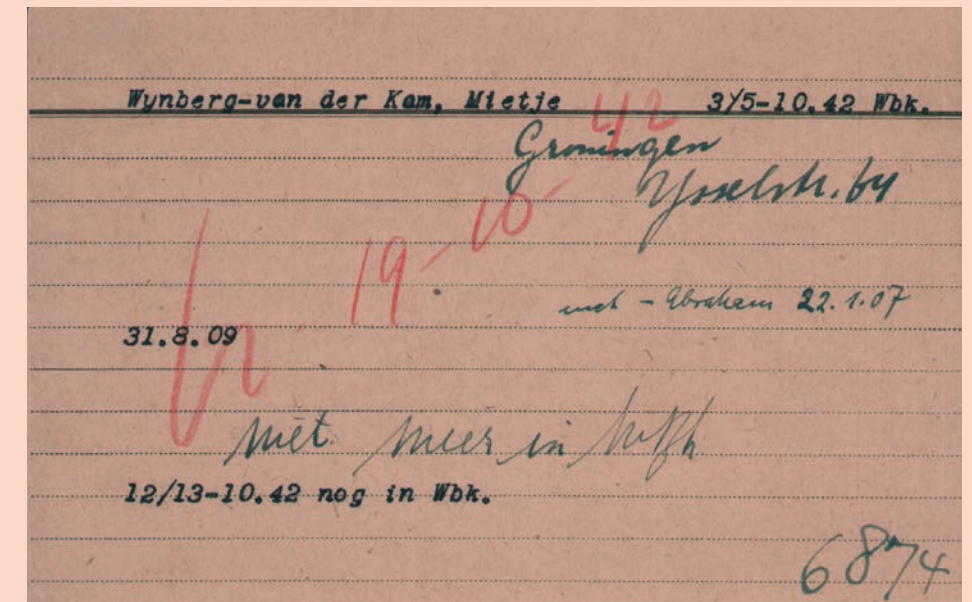 Wynberg-van der Kam, Mietje 3/5-10.42 Wbk.
Groningen
Ysselstr. 64
19-10-42
- Abraham 22.1.07
31.8.09
niet meer in
12/13-10.42 nog in Wbk.
6874